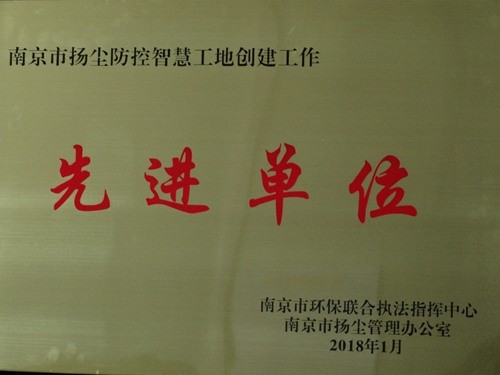 南京市扬尘防控智慧工地创建工作
先进单位
南京市环保联合执法指挥中心
南京市扬尘管理办公室
2018年1月